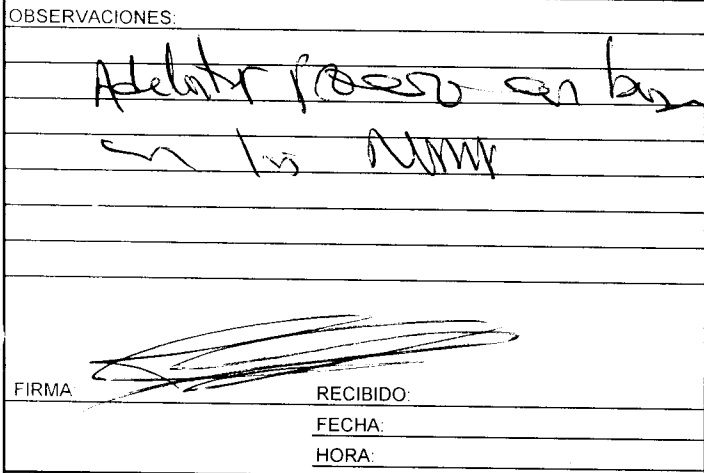 OBSERVACIONES:
Adelantar proceso con base
en las
FIRMA:
RECIBIDO:
FECHA:
HORA: